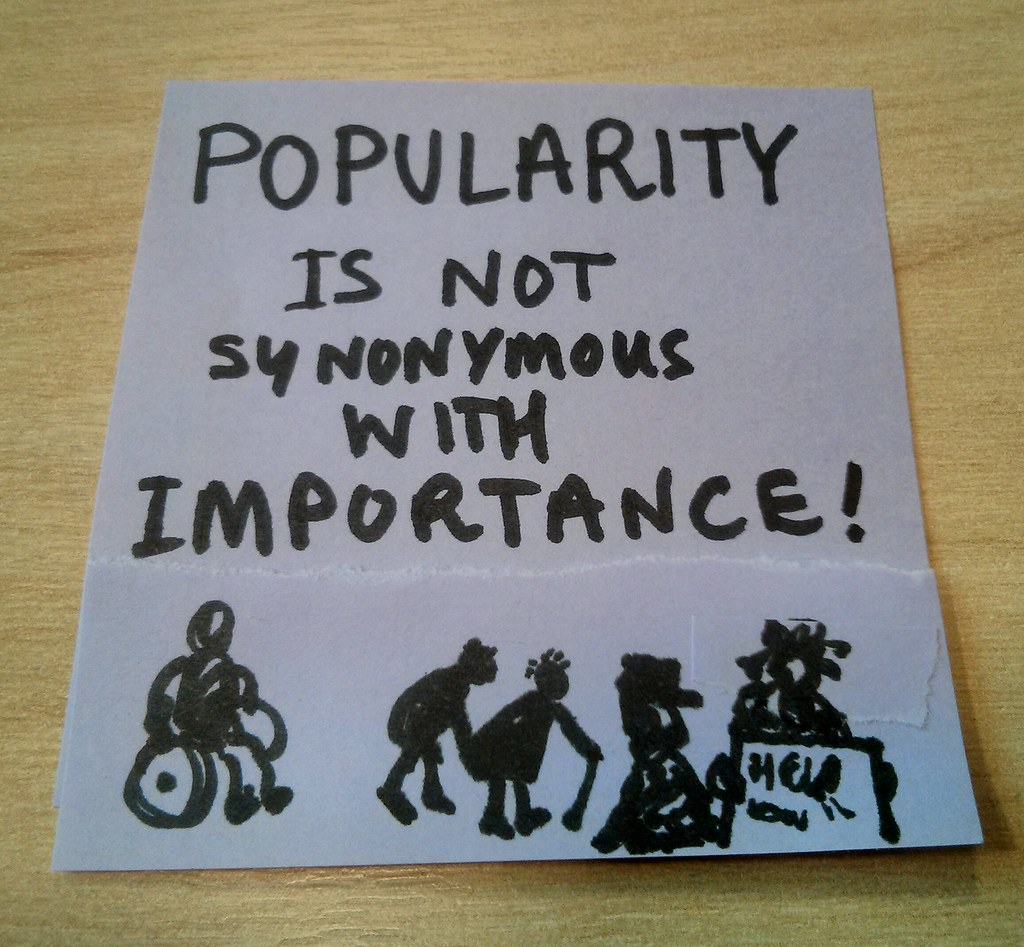 POPULARITY
IS NOT
SYNONYMOUS
WITH
IMPORTANCE!
HELP